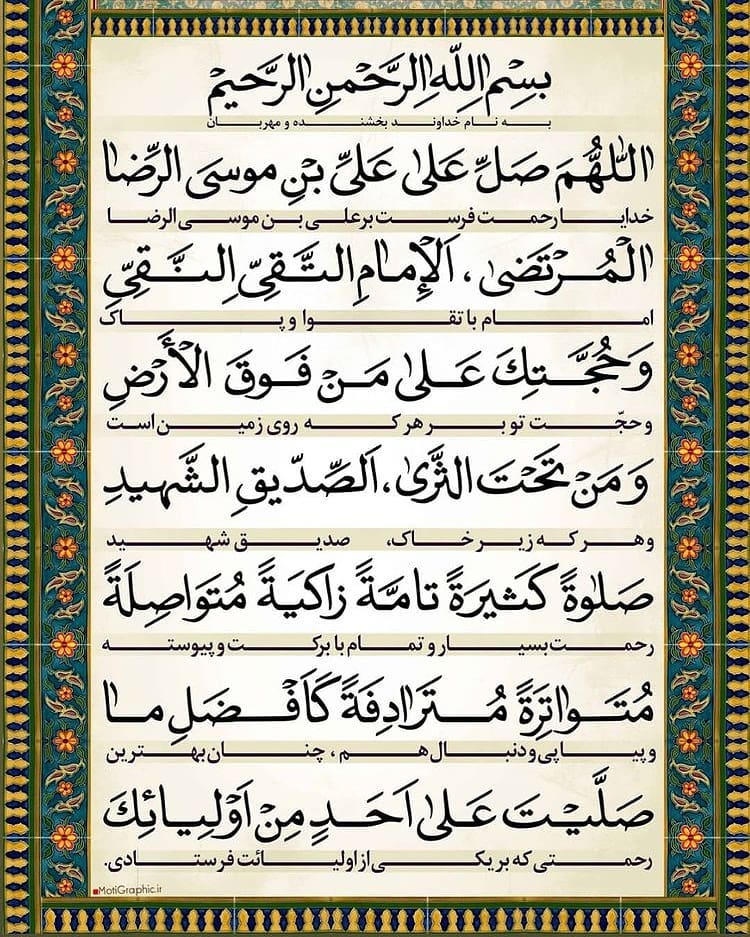 بِسْمِ اللّٰهِ الرَّحْمٰنِ الرَّحیمْ
به نام خداوند بخشنده و مهربان
اَللّٰهُمَّ صَلِّ عَلیٰ عَلیِّ بْنِ موسَی الرِّضَا
خدایا رحمت فرست بر علی بن موسی الرضا
الْمُرْتَضیٰ، اَلإِمامِ التَّقیِّ النَّقیِّ
امام با تقوا و پاک
وَحُجَّتِكَ عَلیٰ مَنْ فَوقَ الْأَرْضِ
و حجّت تو بر هر که روی زمین است
وَ مَنْ تَحْتَ الثَّریٰ، اَلصِّدّیقِ الشَّهیدِ
و هر که زیر خاک، صدیق شهید
صَلٰوةً کَثیرَةً تامَّةً زاکیَةً مُتَواصِلَةً
رحمت بسیار و تمام با برکت و پیوسته
مُتَواتِرَةً مُتَرادِفَةً کَاَفْضَلِ ما
و پیاپی و دنبال هم، چنان بهترین
صَلَّیْتَ عَلیٰ اَحَدٍ مِنْ اَوْلیائِكَ
رحمتی که بر یکی از اولیائت فرستادی.
MotiGraphic.ir